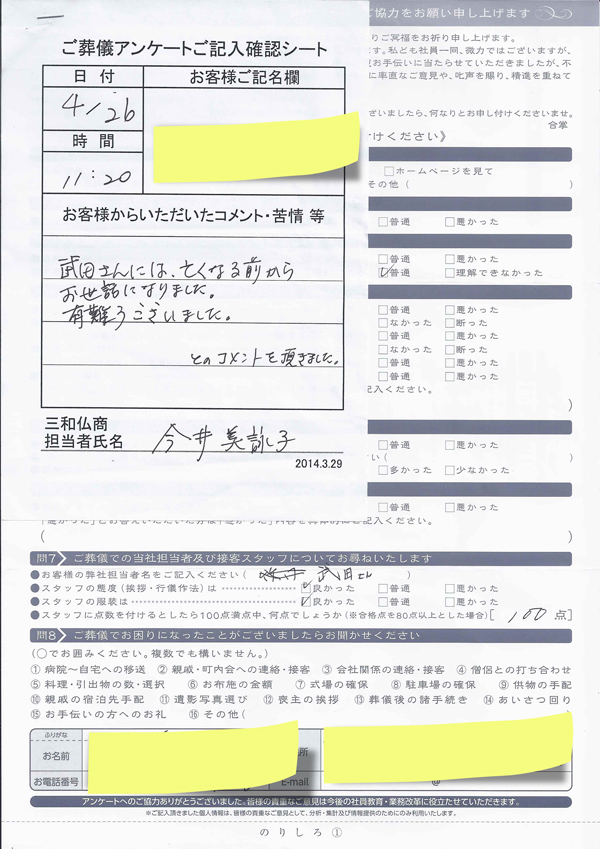 ご葬儀アンケートご記入確認シート
日付
お客様ご記名欄
4/26
時間
11:20
お客様からいただいたコメント・苦情 等
武田さんには、亡くなる前から
お世話になりました。
有難うございました。
とのコメントを頂きました。
三和仏商
担当者氏名 今井 美詠子
2014.3.29
ご協力をお願い申し上げます
りご冥福をお祈り申し上げます。
す。私ども社員一同、微力ではございますが、
お手伝いに当たらせていただきましたが、不
に率直なご意見や、叱声を賜り、精進を重ねて
ざいましたら、何なりとお申し付けくださいませ。
合掌
けください》
□ホームページを見て
その他（ ）
□普通 □悪かった
□普通 □悪かった
☑普通 □理解できなかった
□普通 □悪かった
□なかった □断った
□普通 □悪かった
□なかった □断った
□普通 □悪かった
□普通 □悪かった
記入ください。
）
□普通 □悪かった
い（ ）
□多かった □少なかった
□普通 □悪かった
「悪かった」とお答えいただいた方は「悪かった」内容を具体的にご記入ください。
（ ）
問7 ご葬儀での当社担当者及び接客スタッフについてお尋ねいたします
●お客様の弊社担当者名をご記入ください（ 武田さん ）
●スタッフの態度（挨拶・行儀作法）は ☑良かった □普通 □悪かった
●スタッフの服装は ☑良かった □普通 □悪かった
●スタッフに点数を付けるとしたら100点満点中、何点でしょうか（※合格点を80点以上とした場合）[ 100 点]
問8 ご葬儀でお困りになったことがございましたらお聞かせください
（○でお囲みください。複数でも構いません。）
①病院～自宅への移送 ②親戚・町内会への連絡・接客 ③会社関係の連絡・接客 ④僧侶との打ち合わせ
⑤料理・引出物の数・選択 ⑥お布施の金額 ⑦式場の確保 ⑧駐車場の確保 ⑨供物の手配
⑩親戚の宿泊先手配 ⑪遺影写真選び ⑫喪主の挨拶 ⑬葬儀後の諸手続き ⑭あいさつ回り
⑮お手伝いの方へのお礼 ⑯その他（
ふりがな
お名前
所
お電話番号
E-mail
@
アンケートへのご協力ありがとうございました。皆様の貴重なご意見は今後の社員教育・業務改革に役立たせていただきます。
※ご記入頂きました個人情報は、皆様の貴重なご意見として、分析・集計及び情報提供のためにのみ利用いたします。
のりしろ①